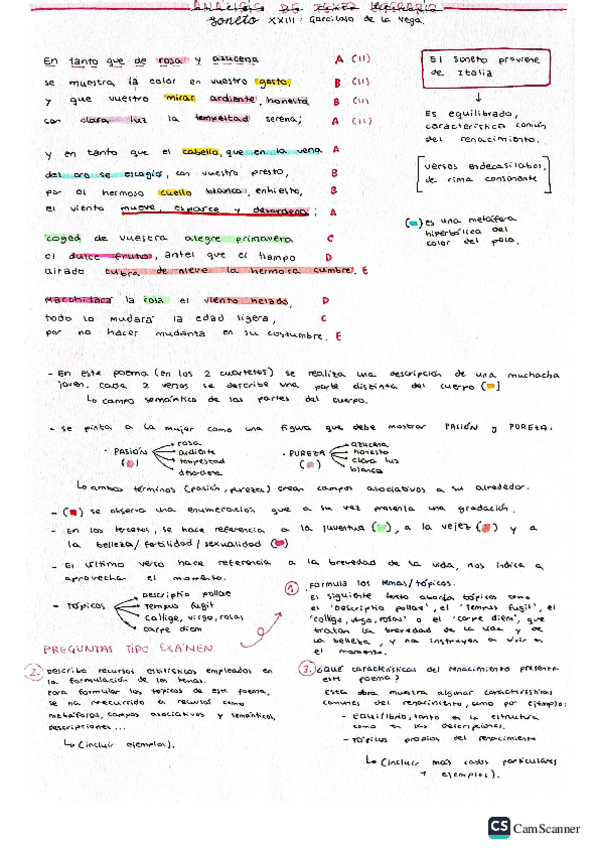 ANÁLISIS DE TEXTO LITERARIO
Soneto XXIII: Garcilaso de la Vega.
En tanto que de rosa y azucena A (11)
se muestra la color en vuestro gesto, B (11)
y que vuestro mirar ardiente, honesto, B (11)
con clara luz la tempestad serena; A (11)
y en tanto que el cabello, que en la vena A
del oro se escogió, con vuestro presto, B
por el hermoso cuello blanco, enhiesto, B
el viento mueve, esparce y desordena; A
coged de vuestra alegre primavera C
el dulce fruto, antes que el tiempo D
airado cubra de nieve la hermosa cumbre. E
Marchitará la rosa el viento helado, D
todo lo mudará la edad ligera, C
por no hacer mudanza en su costumbre. E
El soneto proviene
de Italia
↓
Es equilibrado,
característica común
del renacimiento.
versos endecasílabos,
de rima consonante
( ) es una metáfora
hiperbólica del
color del pelo.
- En este poema (en los 2 cuartetos) se realiza una descripción de una muchacha
joven. Cada 2 versos se describe una parte distinta del cuerpo ( )
↳ campo semántico de las partes del cuerpo.
- Se pinta a la mujer como una figura que debe mostrar PASIÓN y PUREZA.
· PASIÓN ( )
rosa
ardiente
tempestad
desordena
· PUREZA ( )
azucena
honesto
clara luz
blanco
↳ ambos términos (pasión, pureza) crean campos asociativos a su alrededor.
- ( ) se observa una enumeración que a su vez presenta una gradación.
- En los tercetos, se hace referencia a la juventud ( ), a la vejez ( ) y a
la belleza/fertilidad/sexualidad ( )
- El último verso hace referencia a la brevedad de la vida, nos indica a
aprovechar el momento.
- Tópicos
Descriptio pollae
Tempus fugit
Collige, virgo, rosas
carpe diem
PREGUNTAS TIPO EXAMEN
1. Formula los temas/tópicos.
El siguiente texto aborda tópicos como
el 'Descriptio pollae', el 'Tempus fugit', el
'collige, virgo, rosas' o el 'carpe diem', que
tratan la brevedad de la vida y de
la belleza, y nos instruyen a vivir en
el momento.
2. Describe recursos estilísticos empleados en
la formulación de los temas.
Para formular los tópicos de este poema,
se ha recurrido a recursos como
metáforas, campos asociativos y semánticos,
descripciones...
↳ (incluir ejemplos).
3. ¿Qué características del renacimiento presenta
este poema?
Esta obra muestra algunas características
comunes del renacimiento, como por ejemplo:
- Equilibrio, tanto en la estructura
como en las descripciones.
- Tópicos propios del renacimiento
↳ (incluir más casos particulares
+ ejemplos).
CS CamScanner